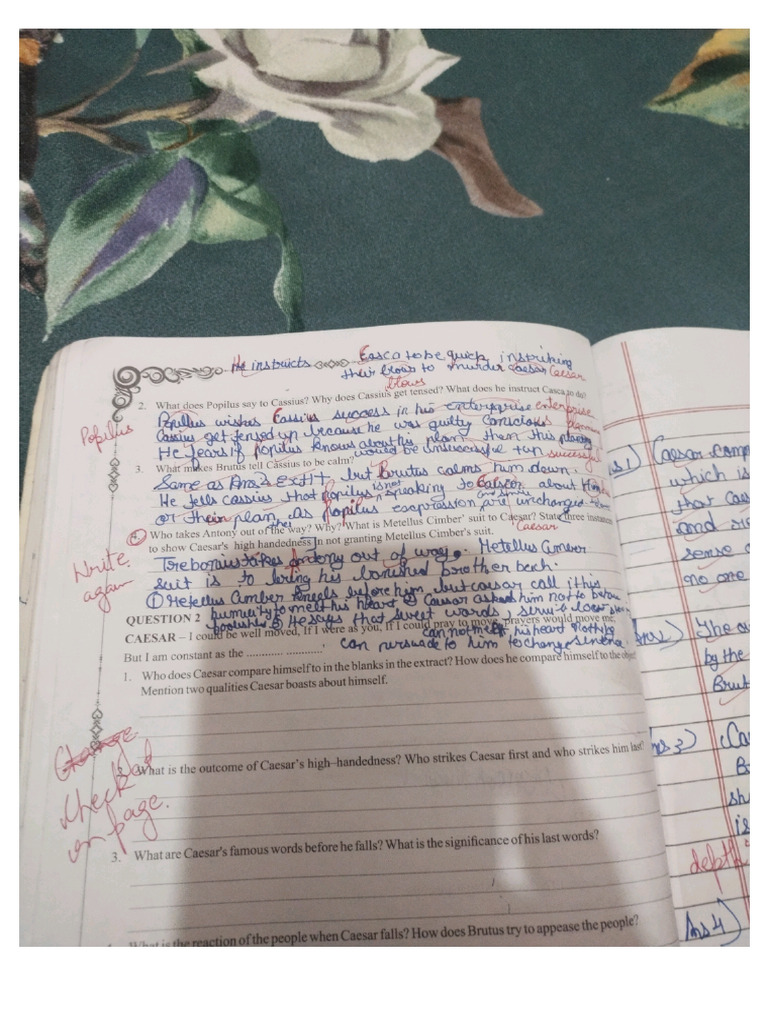 He instructs Casca to be quick, instriking
their blows to murder caesar Caesar
blows
2. What does Popilus say to Cassius? Why does Cassius get tensed? What does he instruct Casca to do?
Popilus
Popillus wishes Cassius success in his enterprise enterprise
Cassius get tensed up because he was guilty Conscious
He fears if popilus knows about his plan then this planing
would be unsuccessful successful
3. What makes Brutus tell Cassius to be calm?
Same as Ans 2 Ext 1, but Brutus calms him down.
He tells cassius that popilus, isnot speaking to Caesar about Him
or their plan, as Popilus expression are unchanged
and smiles
4. Who takes Antony out of the way? Why? What is Metellus Cimber' suit to Caesar? State three instances
Caesar
to show Caesar's high handedness in not granting Metellus Cimber's suit.
Write
again
Trebonius takes Antony out of way. Metellus Cimber
suit is to bring his banished brother back.
① Metellus Cimber kneels before him, but caesar call it his
humicity to melt his heart ② Caesar asked him not to
QUESTION 2
③ He says that sweet words,
CAESAR – I could be well moved, If I were as you, If I could pray to move, prayers would move me,
can not melt his heart Nothing
But I am constant as the .............. .............. .
can persuade to him to change sentence
1. Who does Caesar compare himself to in the blanks in the extract? How does he compare himself to the
Mention two qualities Caesar boasts about himself.
check
on page.
2. What is the outcome of Caesar's high–handedness? Who strikes Caesar first and who strikes him last?
3. What are Caesar's famous words before he falls? What is the significance of his last words?
What is the reaction of the people when Caesar falls? How does Brutus try to appease the people?
Caesar comp
which is
that cae
and
sense
no one
The
by the
Brut
Ans 3) Ca
B
sh
is
depth
Ans 4)